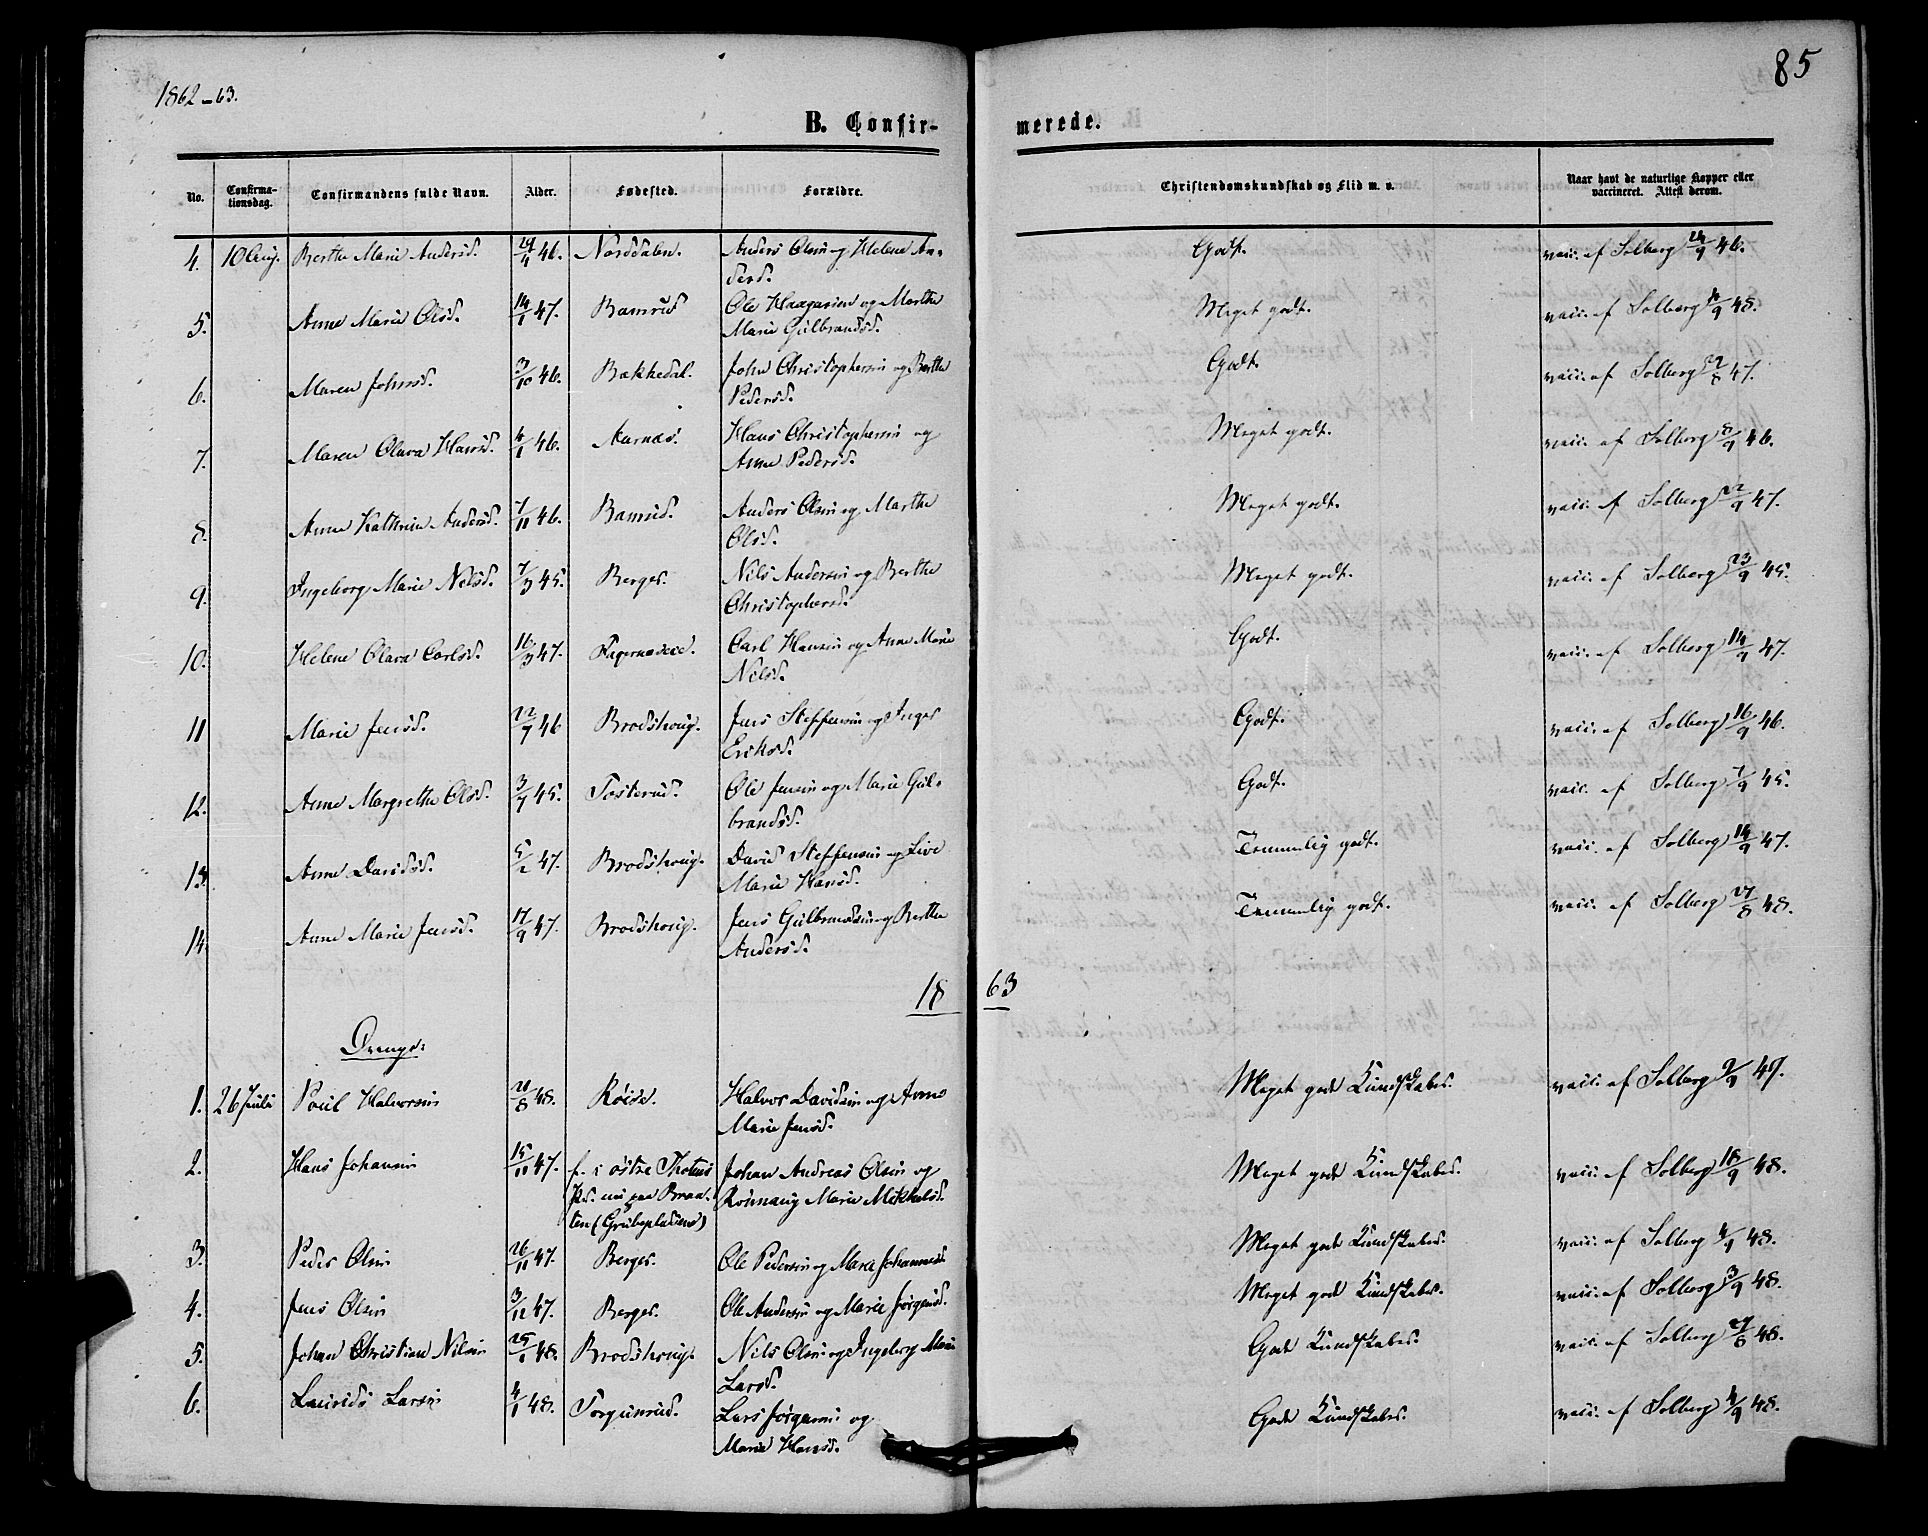 1862-63.
85
B. Confir-
merede.
No.
Confirma-
tionsdag.
Confirmandens fulde Navn.
Alder.
Fødested.
Forældre.
Christendomskundskab og Flid m. v.
Naar havt de naturlige Kopper eller
vaccineret. Attest derom.
4. 10 Aug. Berthe Marie Andersd. 29/4 46. Norddalen. Anders Olsen og Helene An- Godt. vacc. af Solberg 24/9 46.
dersd.
5. Anne Marie Olsd. 14/1 47. Bamrud Ole Haagensen og Marthe Meget godt. vacc. af Solberg 4/9 48.
Marie Gulbrandsd.
6. Maren Johnsd. 3/10 46. Bakkedal. John Christophersen og Berthe Godt. vacc. af Solberg 22/8 47.
Pedersd.
7. Maren Olava Hansd. 4/1 46. Aarnæs. Hans Christophersen og Meget godt. vacc. af Solberg 8/9 46.
Anne Pedersd.
8. Anne Kathrine Andersd. 7/11 46. Bamrud. Anders Olsen og Marthe Meget godt. vacc. af Solberg 22/9 47.
Olsd.
9. Ingeborg Marie Nilsd. 7/3 45. Berger. Nils Andersen og Berthe Meget godt. vacc. af Solberg 23/9 45.
Christophersd.
10. Helene Olava Carlsd. 16/3 47. Carl Hansen og Anne Marie Godt. vacc. af Solberg 14/9 47.
Nilsd.
11 Marie Jensd. 22/7 46 Brodshoug. Jens Steffensen og Inger Godt. vacc. af Solberg 16/9 46.
Eriksd.
12. Anne Margrethe Olsd. 3/7 45. Tosterud. Ole Jensen og Marie Gul- Godt. vacc. af Solberg 7/9 45.
brandsd.
13. Anne Davidsd. 5/2 47. Brodshoug. David Steffensen og Live Temmelig godt. vacc. af Solberg 14/9 47.
Marie Hansd.
14 Anne Marie Jensd. 17/9 47. Brodshoug. Jens Gulbrandsen og Berthe Temmelig godt. vacc. af Solberg 27/8 48.
Andersd.
18 63
Drenge:
1. 26 Juli Poul Halvorsen 20/8 48. Røise. Halvor Davidsen og Anne Meget gode Kundskaber. vacc. af Solberg 9/9 49.
Marie Jensd.
2. Hans Johansen 15/11 47. f. i østre Thotens Johan Andreas Olsen og Meget gode Kundskaber. vacc. af Solberg 18/9 48.
Pd. nu paa Braa- Rønnaug Marie Mikkelsd.
ten (Grubepladsene)
3. Peder Olsen 26/11 47. Berger. Ole Pedersen og Mari Johannesd. Meget gode Kundskaber. vacc. af Solberg 4/9 48.
4. Jens Olsen 3/12 47. Berger. Ole Andersen og Marie Jørgensd. Meget gode Kundskaber. vacc. af Solberg 3/9 48.
5. Johan Christian Nilsen 25/1 48. Brodshoug. Nils Olsen og Ingeborg Marie Gode Kundskaber. vacc. af Solberg 27/8 48.
Larsd.
6. Laurids Larsen 4/1 48. Torgunrud. Lars Jørgensen og Gode Kundskaber. vacc. af Solberg 4/9 48.
Marie Hansd.